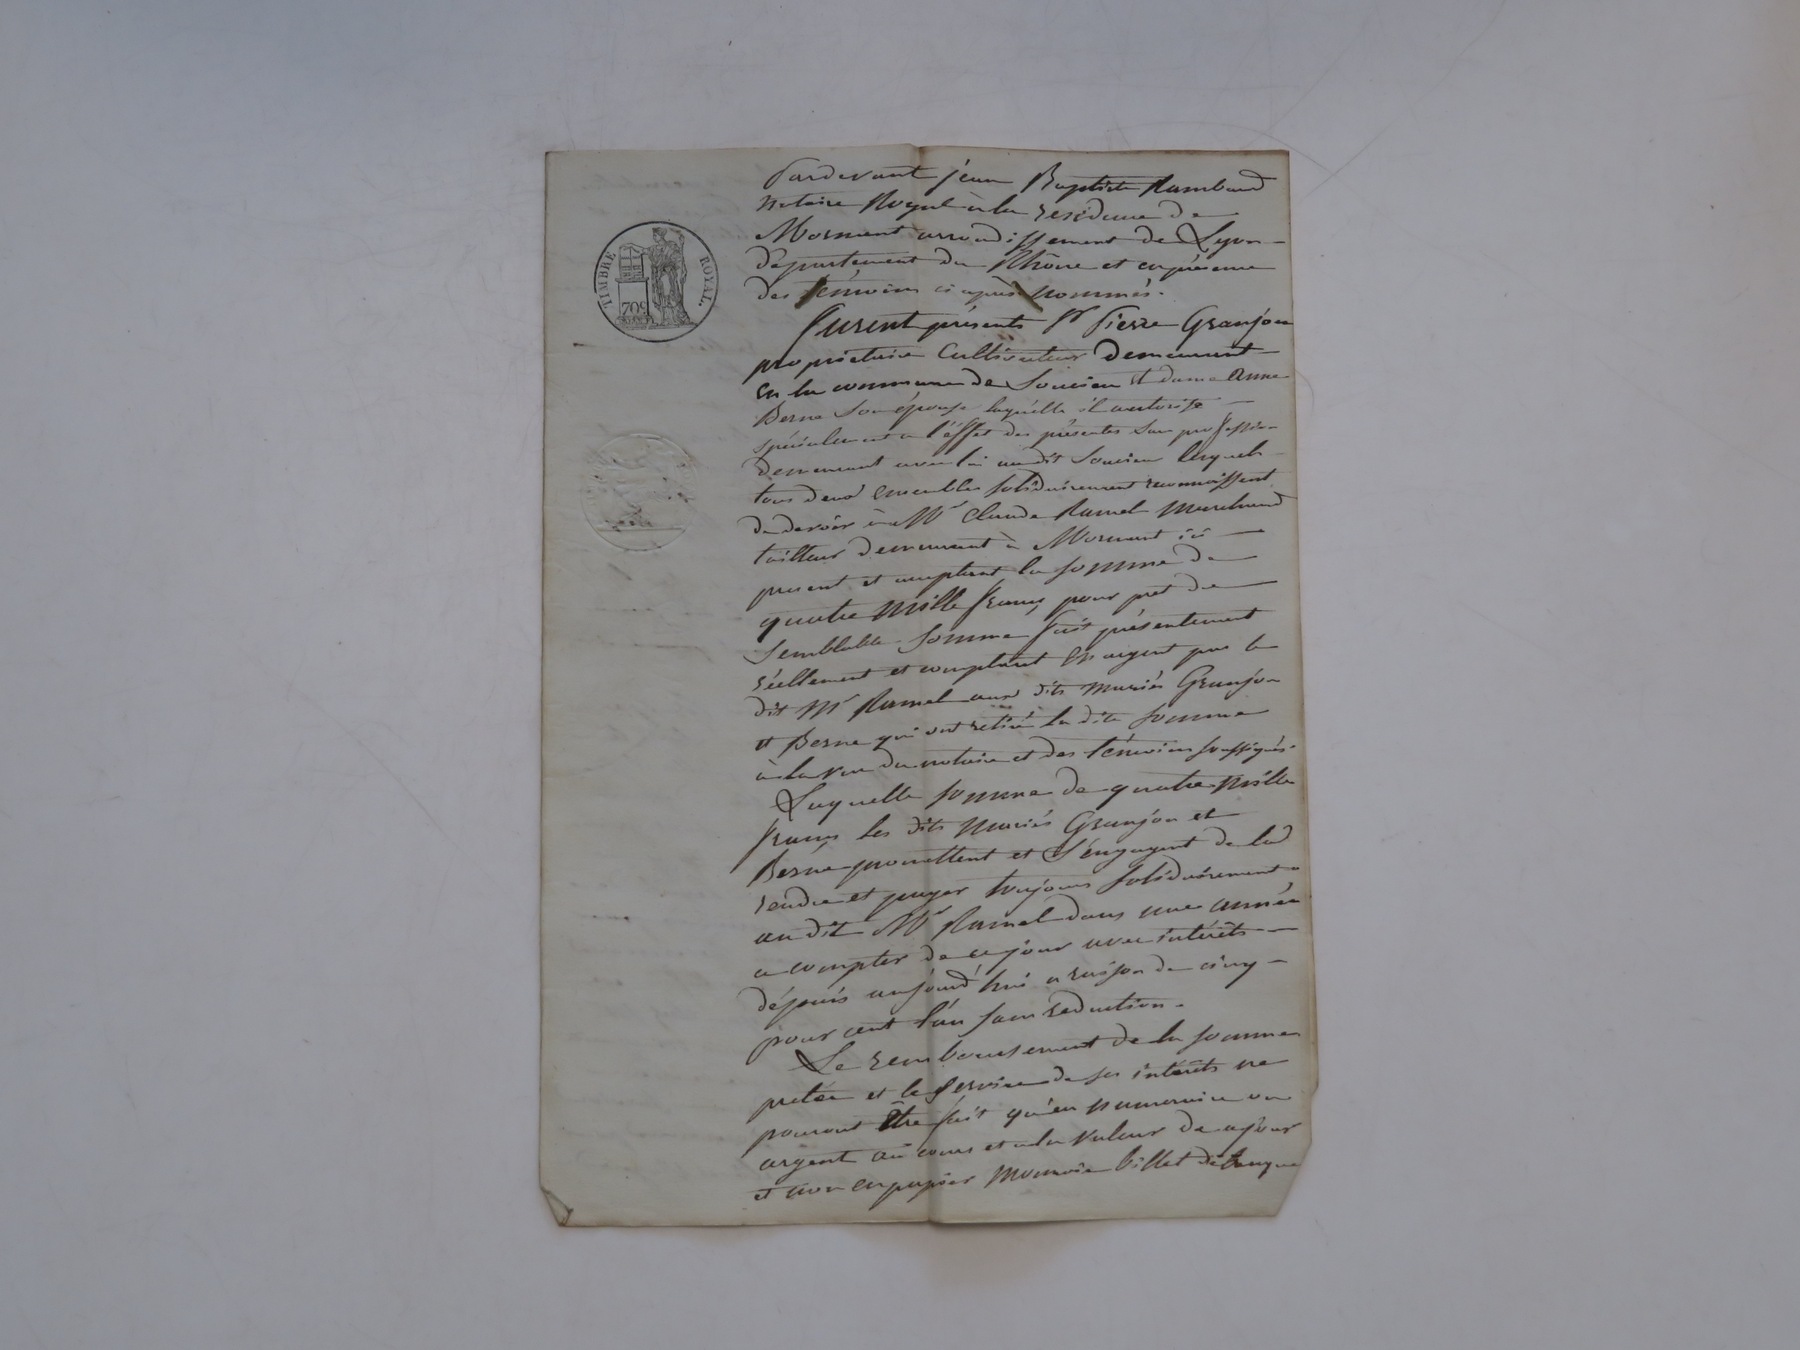 TIMBRE ROYAL.
70c
Pardevant jean Baptiste Rambaud
notaire Royal à la residence de
Mornant arrondissement de Lyon
département du Rhône et en présence
des témoins ci après nommés.
furent présents Sr Pierre Granjon
propriétaire Cultivateur demeurant
en la commune de Soucieu et dame Anne
Berne son épouse laquelle il autorise
spécialement a l'éffet des présentes sans profession
demeurant avec lui audit Soucieu lesquels
tous deux ensembles solidairement reconnoissent
de devoir à Mr Claude Ramel marchand
tailleur demeurant à Mornant ici
présent et acceptant la somme de
quatre mille francs pour pret de
semblable somme fait présentement
réellement et comptant en argent par le
dit Mr Ramel aux dits mariés Granjon
et Berne qui ont retiré la dite somme
à la vue du notaire et des témoins soussignés.
Laquelle somme de quatre mille
francs les dits mariés Granjon et
Berne promettent et s'engagent de la
rendre et payer toujours solidairement
au dit Mr Ramel dans une année
a compter de ce jour avec intérêts
dépuis aujourd'hui a raison de cinq
pour cent l'an sans reduction.
Le remboursement de la somme
pretée et le service de ses intérêts ne
pouront être fait qu'en numeraire ou
argent au cours et a la valeur de ce jour
et non en papier monnoie billet de banque